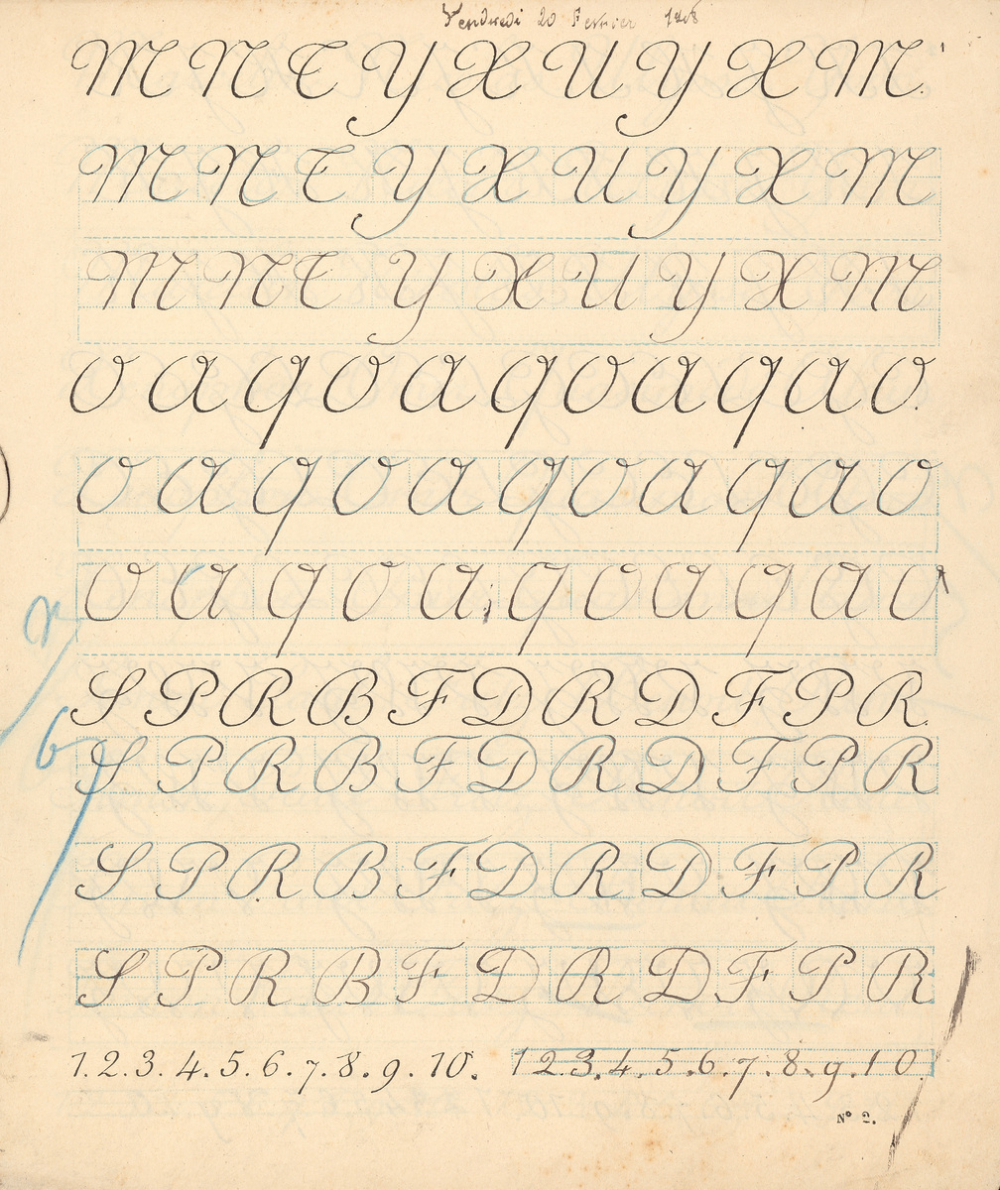 Vendredi 20 Fevrier
M N T Y X U Y X M.
M N T Y X U Y X M
M N T Y X U Y X M
O A Q O A Q O A Q A O.
O A Q O A Q O A Q A O
O A Q O A Q O A Q A O
S P R B F D R D F P R.
S P R B F D R D F P R
S P R B F D R D F P R
S P R B F D R D F P R
1. 2. 3. 4. 5. 6. 7. 8. 9. 10. 1 2. 3. 4. 5. 6. 7. 8. 9. 10.
Nº 2.